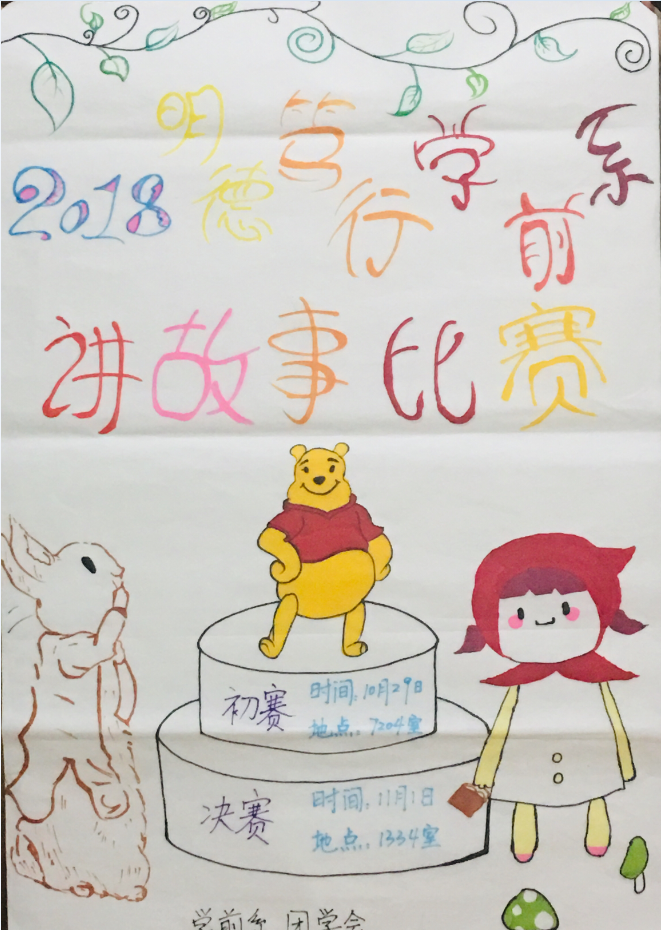 2018
明德笃行学前系
讲故事比赛
初赛
时间:10月29日
地点:7204室
决赛
时间:11月1日
地点:1334室
学前系 团学会